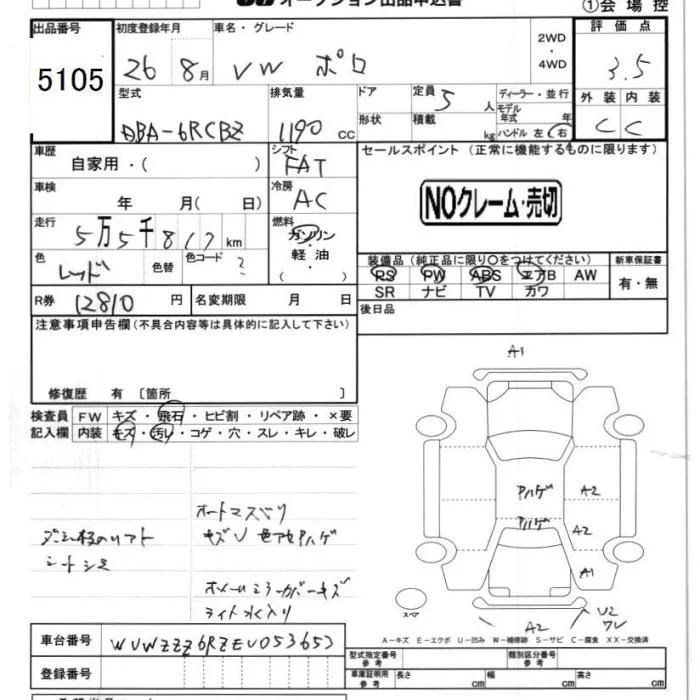 オークション出品申込書
①会場控
出品番号 初度登録年月 車名・グレード 評価点
5105 26 8月 VW ポロ 2WD ・ 4WD 3.5
型式 排気量 ドア 定員 5人 ディーラー・並行 外装 内装
モデル年式 年
DBA-6RCBZ 1190 cc 形状 積載 kg ハンドル 左・右 C C
車歴 自家用・( ) シフト FAT セールスポイント (正常に機能するものに限ります)
車検 年 月( 日) 冷房 AC NOクレーム・売切
走行 5万5千817km 燃料 ガソリン・軽油・( )
色 レッド 色替 色コード ? 装備品(純正品に限り○をつけてください) 新車保証書
PS PW ABS エアB AW 有・無
SR ナビ TV カワ
R券 12810円 名変期限 月 日 後日品
注意事項申告欄(不具合内容等は具体的に記入して下さい)
修復歴 有〔箇所 〕
検査員 FW キズ・飛石・ヒビ割・リペア跡・×要
記入欄 内装 キズ・汚レ・コゲ・穴・スレ・キレ・破レ
シートシミ
オートマスベリ
キズU 色アセハゲ
ドアミラーカバーキズ
ライト水入り
A1
ハゲ A2
ハゲ A2
A1
スペア
A2
U2
ワレ
A-キズ E-エクボ U-凹み W-補修跡 S-サビ C-腐食 XX-交換済
車台番号 WVWZZZ6RZEU053653
型式指定番号 参考 類別区分番号 参考
登録番号 車庫証明用 参考 長さ cm 幅 cm 高さ cm